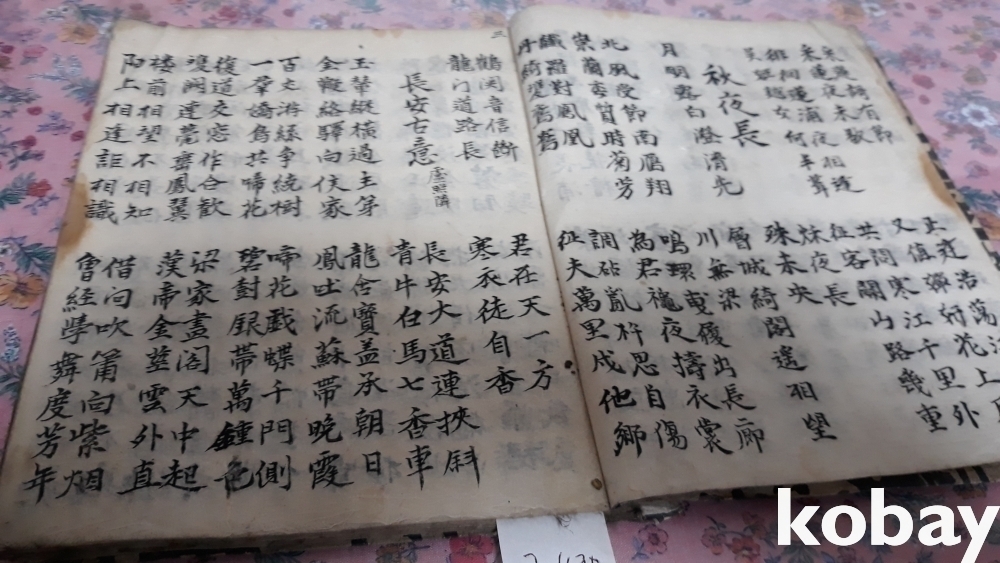 采蓮歌有節
采蓮夜未歇
共問寒江千里外
征客關山路幾重
秋夜長
秋夜長
殊未央
月明露白澄清光
層城綺閣遙相望
川無梁
北風受節南雁翔
崇蘭委質時菊芳
鳴環曳履出長廊
為君秋夜擣衣裳
纖羅對鳳凰
丹綺雙鴛鴦
調砧亂杵思自傷
征夫萬里戍他鄉
三
鶴関音信断
龍门道路長
君在天一方
寒衣徒自香
長安古意 盧照隣
長安大道連挾斜
青牛白馬七香車
玉輦縱横過主第
金鞭絡驛向侯家
龍含寶盖承朝日
鳳吐流蘇帶晚霞
百丈游絲争繞樹
一羣嬌鳥共啼花
啼花戲蝶千門側
碧對銀帶萬鍾色
復道交窓作合歡
雙闕甍齊鳳翼
梁家畫阁天中起
漢帝金莖雲外直
楼前相望不相知
陌上相逢詎相識
借问吹簫向紫烟
曾経學舞度芳年
kobay